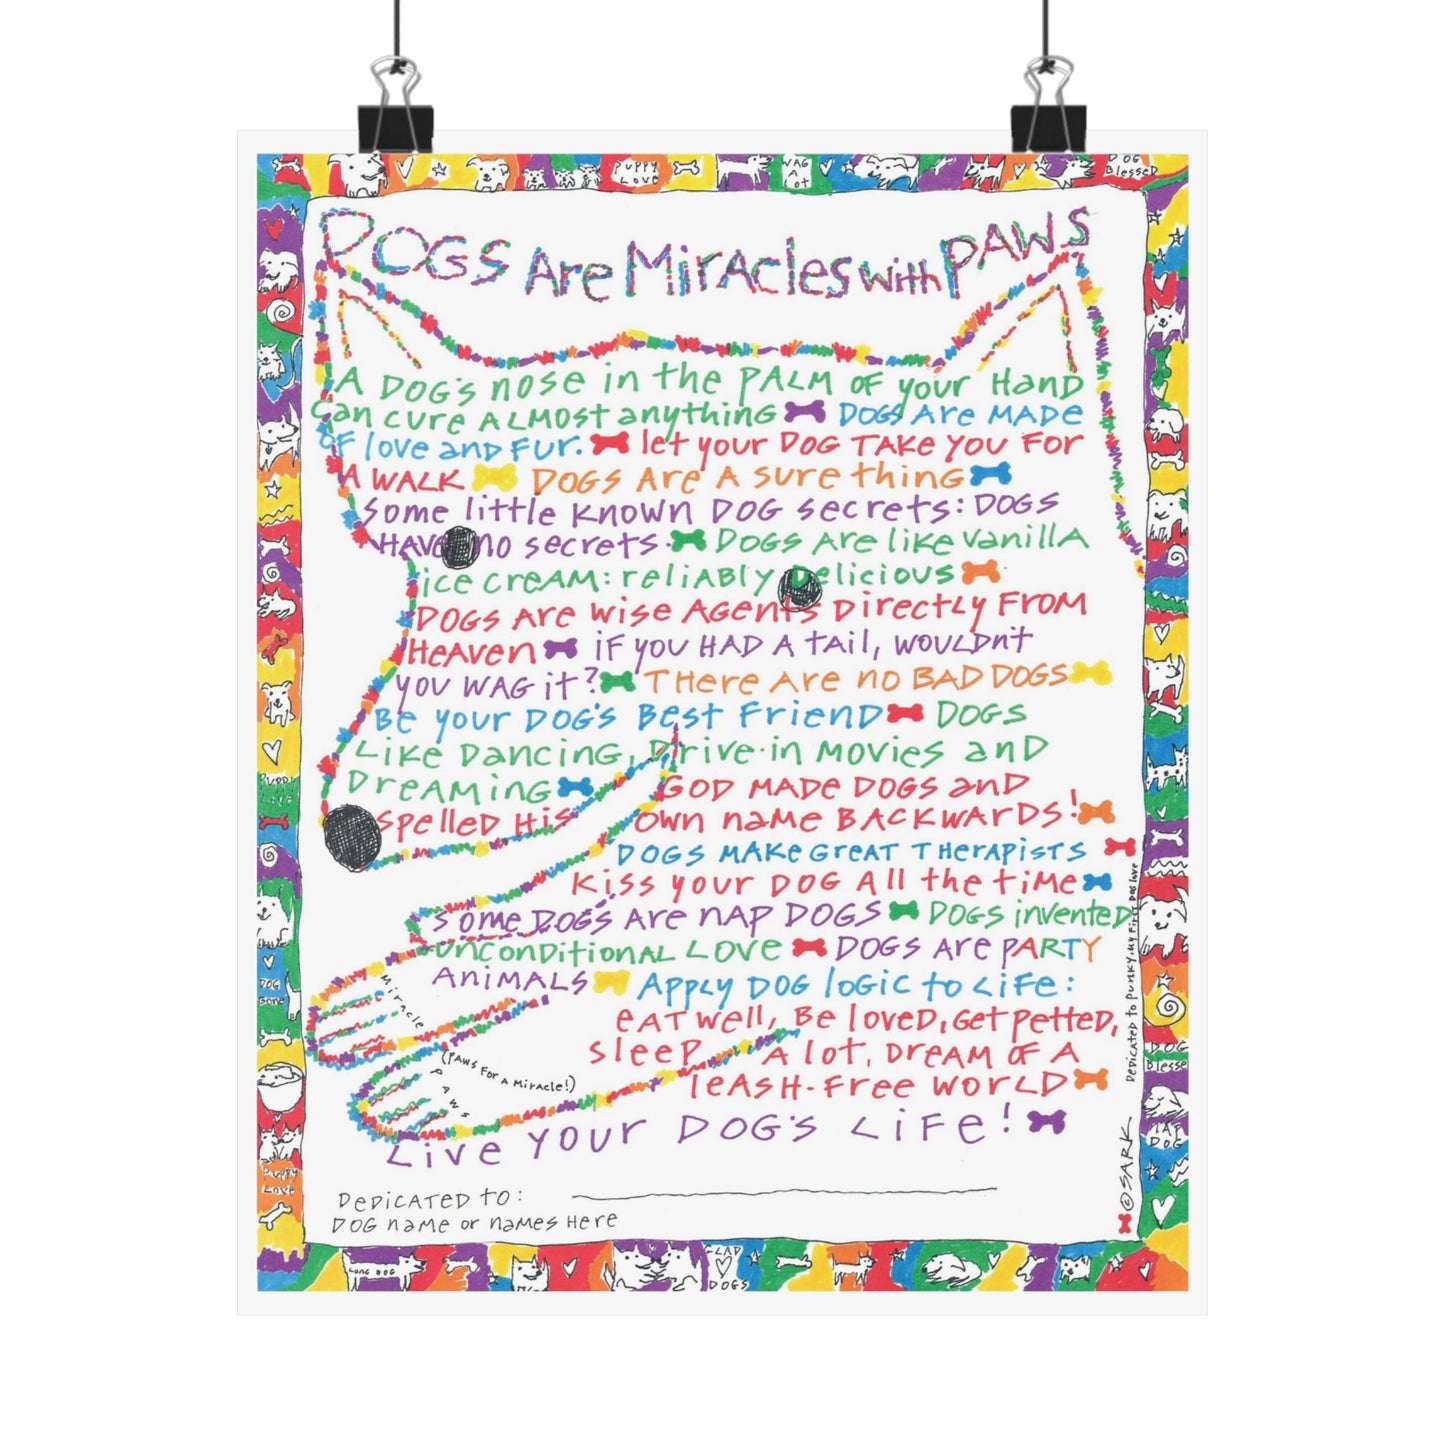 PUPPY LOVE
WAG A LOT
DOG Blessed
DOGS Are Miracles with PAWS
A DOG'S nose in the PALM OF your HAND
CAN CURE ALMOST anything DOGS Are MADE
OF love and FUR. let your DOG TAKE YOU FOR
A WALK DOGS Are A sure thing
Some little KNOWN DOG secrets: DOGS
HAVE NO secrets. DOGS Are like vanilla
ice cream: reliABLY Delicious
DOGS Are wise Agents Directly FROM
Heaven if you HAD A tail, wouldn't
you WAG it? There Are no BAD DOGS
Be your DOG'S Best Friend DOGS
Like Dancing, Drive-in Movies and
Dreaming GOD MADE DOGS and
spelled His own name BACKWARDS!
DOGS MAKE Great THerapists
Kiss your DOG All the time
Some DOGS Are nap DOGS DOGS invented
unconditional Love DOGS Are pARTY
Animals Apply DOG logic to Life:
eAT well, Be loved, Get petted,
sleep A lot, Dream OF A
leash-free World
Live Your DOG'S Life!
Miracle
PAWS
(PAWS For A Miracle!)
Dedicated to:
DOG name or names Here
Dedicated to Punky, my First Dog love
© SARK
PUPPY
DOG Gone
Puppy Love
DOG Blesser
NAP DOG
LONG DOG
GLAD DOGS